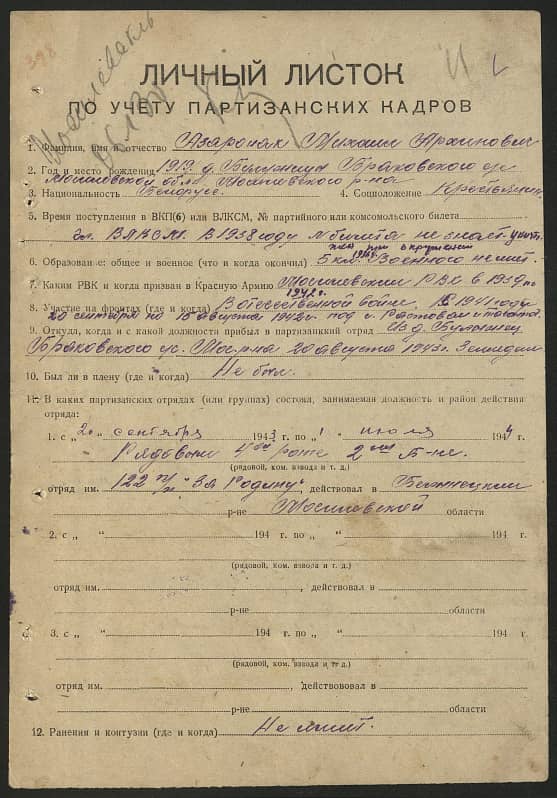 398
ЛИЧНЫЙ ЛИСТОК
ПО УЧЕТУ ПАРТИЗАНСКИХ КАДРОВ
1. Фамилия, имя и отчество Азарочак Михаил Архипович
2. Год и место рождения 1919 д. Браковского
Могилевской обл. Могилевского р-на
3. Национальность Белорус. 4. Соцположение
5. Время поступления в ВКП(б) или ВЛКСМ, № партийного или комсомольского билета
Чл. ВЛКСМ. В 1938 году №билета не
при окружении
6. Образование: общее и военное (что и когда окончил) 5 кл. Военного не имт.
7. Каким РВК и когда призван в Красную Армию Могилевским РВК в 1939
1942 г.
8. Участие на фронтах (где и когда) В Отечественной войне, 1941 году
по 15 августа 1942 под г. Растовом
9. Откуда, когда и с какой должности прибыл в партизанский отряд Из д.
Браковского 20 августа 1943 г.
10. Был ли в плену (где и когда) Не был.
11. В каких партизанских отрядах (или группах) состоял, занимаемая должность и район действия
отряда:
1. с „20 сентября 1943 г. по „1 " июля 1944 г.
Рядовой роте 2
(рядовой, ком. взвода и т. д.)
отряд им. 122 п/п "За Родину", действовал в
р-не Могилевской области
2. с „ " 194 г. по „ " 194 г.
(рядовой, ком. взвода и т. д.)
отряд им. , действовал в
р-не области
3. с „ " 194 г. по „ " 194 г.
(рядовой, ком. взвода и т д.)
отряд им. , действовал в
р-не области
12. Ранения и контузии (где и когда) Не имит.